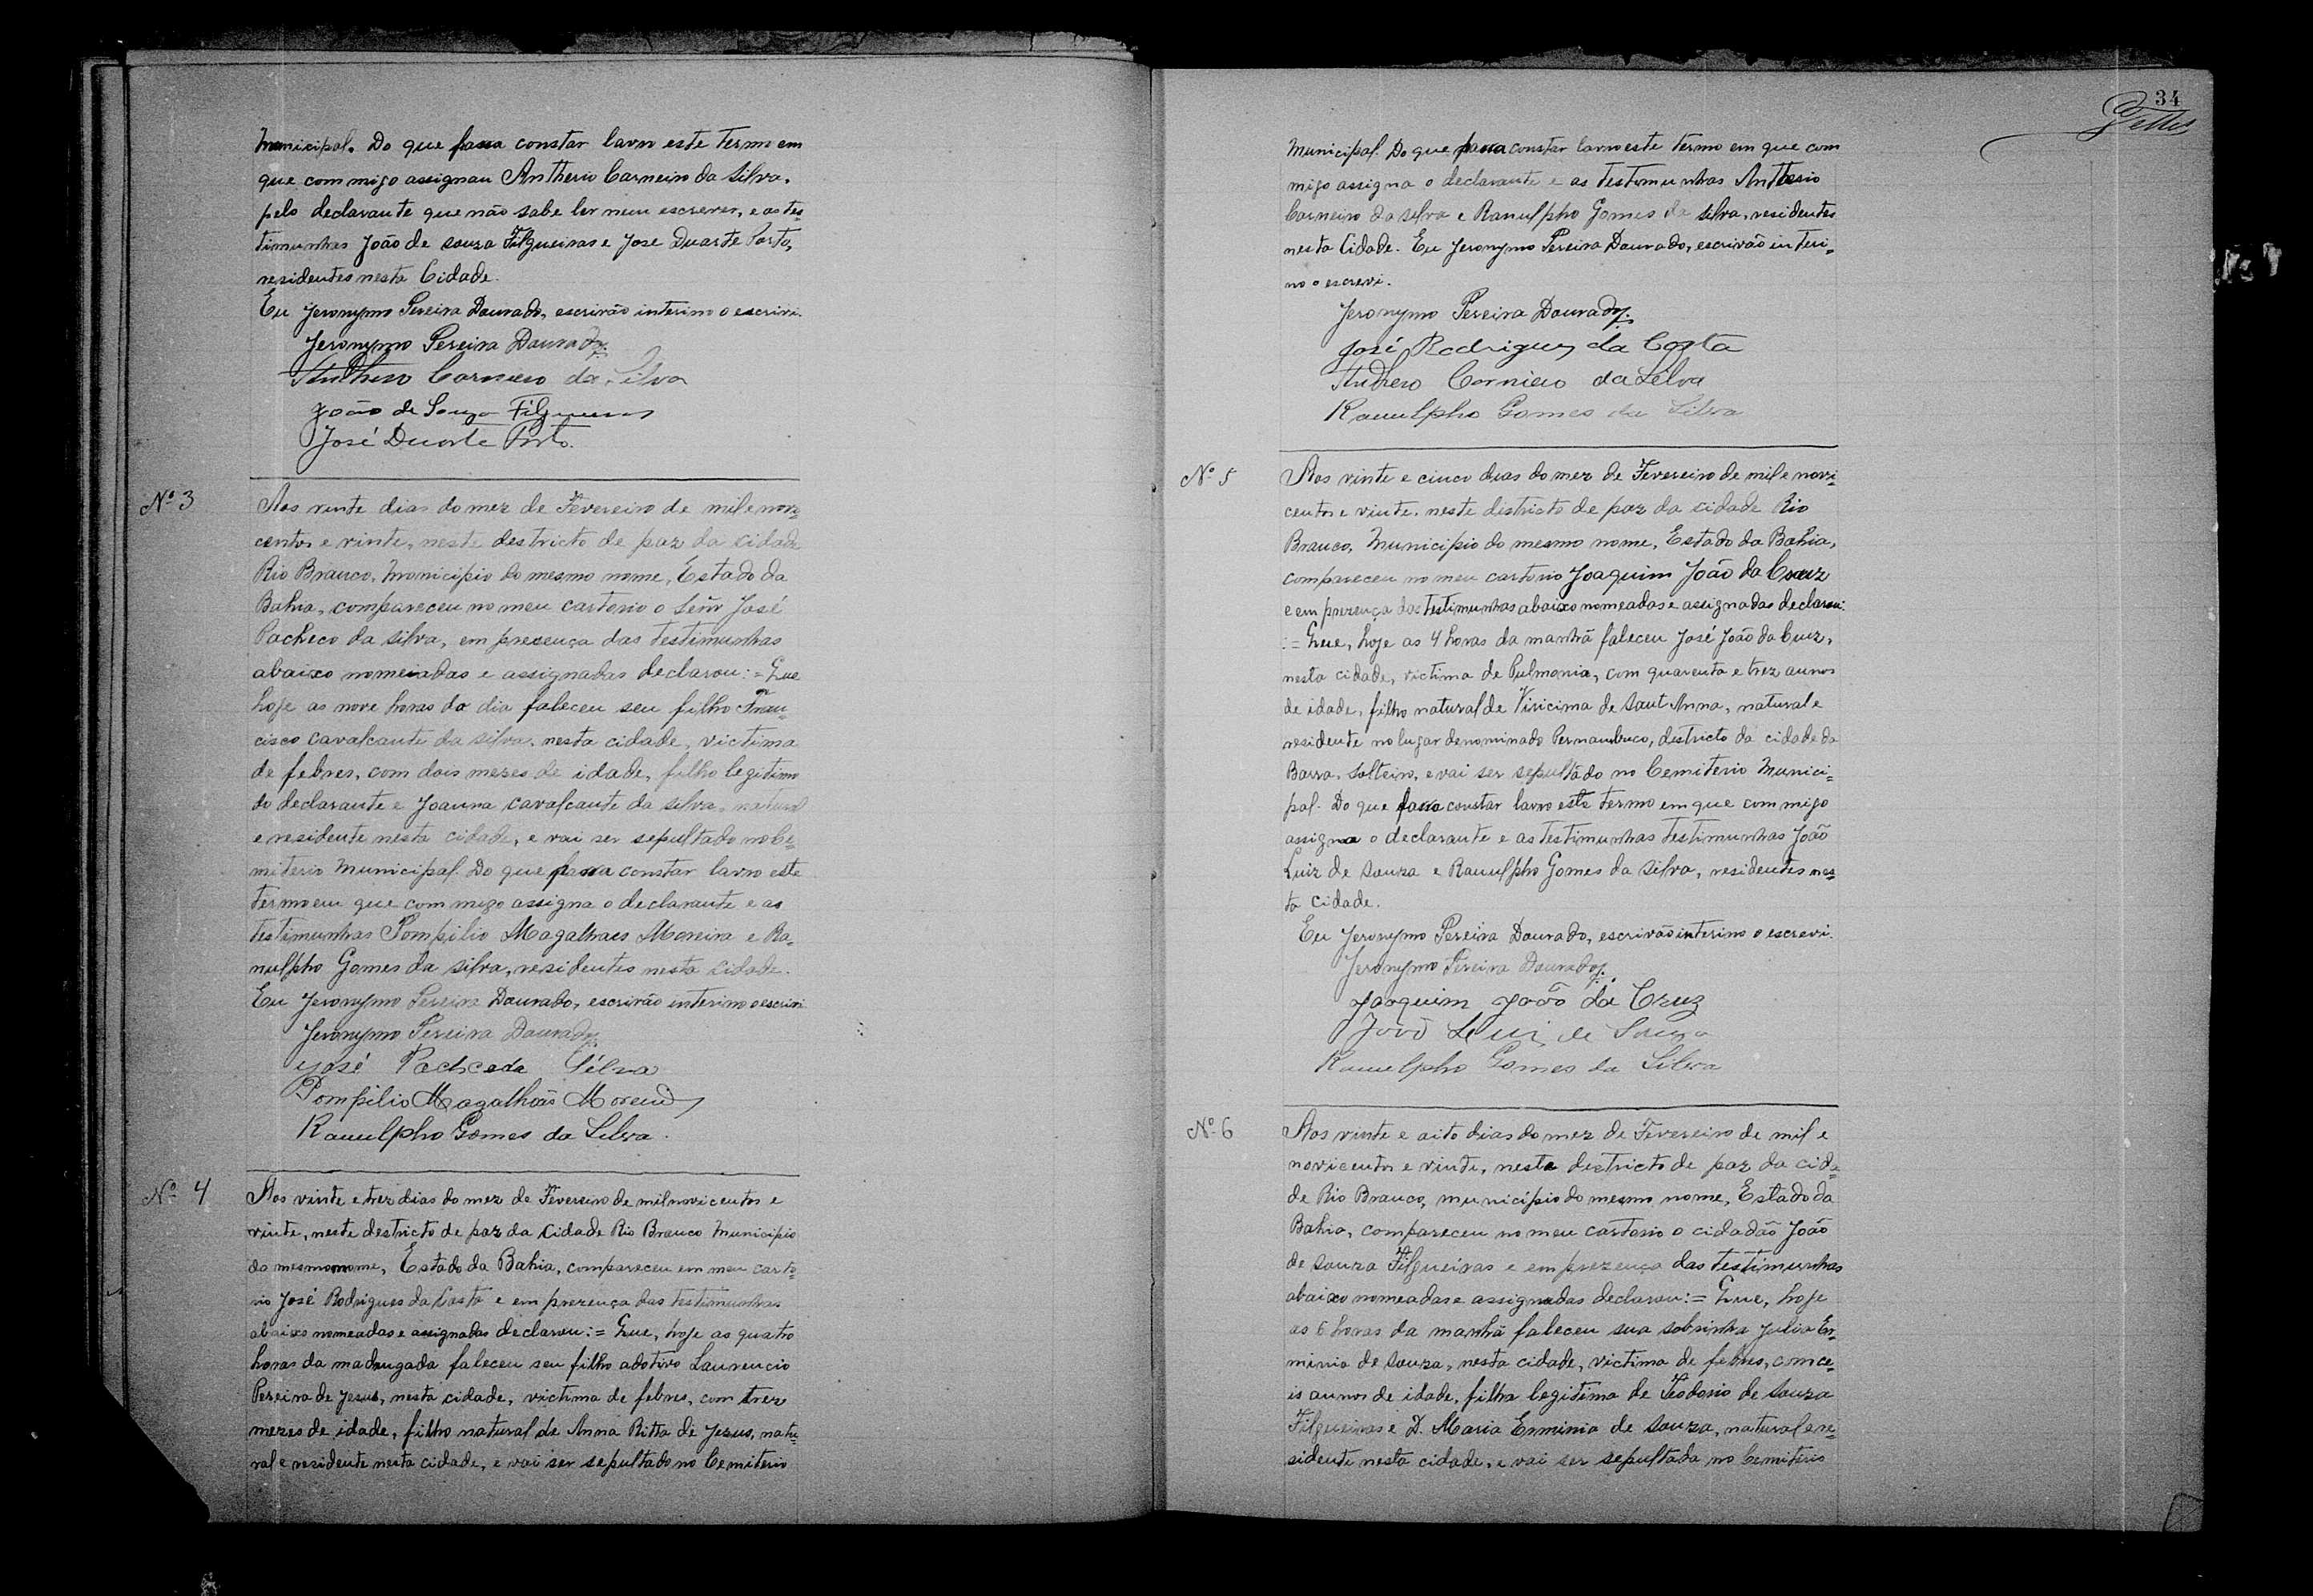 Municipal. Do que passa constar lavro este termo em
que commigo assignau Antherio Carneiro da Silva,
pelo declarante que não sabe ler nem escrever, e as tes-
timunhas João de souza Filgueiras e Jose Duarte Porto,
residentes nesta Cidade.
Eu Jeronymo Pereira Dourado, escrivão interino o escrivi.
Jeronymo Pereira Dourado.
Anthero Carneiro da Silva
João de Souza Filgueiras
José Duarte Porto.
Nº 3
Aos vinte dias do mez de Fevereiro de mil e novi-
centos e vinte, neste destricto de paz da cidade
Rio Branco, Município do mesmo nome, Estado da
Bahia, compareceu no meu cartorio o Señr José
Pacheco da silva, em presença das testimunhas
abaixo nomeiadas e assignadas declarou:= Que
hoje as nove horas do dia faleceu seu filho Fran-
cisco cavalcante da silva, nesta cidade, victima
de febres, com dois mezes de idade, filho legitimo
do declarante e Joanna cavalcante da silva, natural
e residente nesta cidade, e vai ser sepultado no Ce-
miterio Municipal. Do que passa constar lavro este
termo em que commigo assigna o declarante e as
testimunhas Pompilio Magalhaes Moreira e Ra-
nulpho Gomes da silva, residentes nesta cidade.
Eu Jeronymo Pereira Dourado, escrivão interino o escrivi
Jeronymo Pereira Dourado.
José Pacheco da Silva
Pompilio Magalhães Moreira
Ranulpho Gomes da Silva.
Nº 4
Aos vinte e trez dias do mez de Fevereiro de mil novicentos e
vinte, neste destricto de paz da Cidade Rio Branco Municipio
do mesmo nome, Estado da Bahia, compareceu em meu carto-
rio José Rodrigues da Costa e em prezença das testimunhas
abaixo nomeadas e assignadas declarou:= Que, hoje as quatro
horas da madrugada faleceu seu filho adotivo Laurencio
Pereira de Jesus, nesta cidade, victima de febres, com trez
mezes de idade, filho natural de Anna Ritta de Jesus, natu-
ral e residente nesta cidade, e vai ser sepultado no Cemiterio
34
Municipal. Do que passa constar lavro este termo em que com
migo assigna o declarante e as testemunhas Antherio
Carneiro da silva e Ranulpho Gomes da silva, residentes
nesta Cidade. Eu Jeronymo Pereira Dourado, escrivão interi-
no o escrevi.
Jeronymo Pereira Dourado.
José Rodrigues da Costa
Anthero Carneiro da Silva
Ranulpho Gomes da Silva
Nº 5
Aos vinte e cinco dias do mez de Fevereiro de mil e novi-
centos e vinte, neste districto de paz da cidade Rio
Branco, Municipio do mesmo nome, Estado da Bahia,
compareceu no meu cartorio Joaquim João da Cruz
e em prezença das testimunhas abaixo nomeadas e assignadas declarou:
:= Que, hoje as 4 horas da manhã faleceu José João da Cruz,
nesta cidade, victima de Pulmonia, com quarenta e trez annos
de idade, filho natural de Viricima de Sant Anna, natural e
residente no lugar denominado Pernambuco, districto da cidade da
Barra, solteiro, e vai ser sepultado no Cemiterio Munici-
pal. Do que passa constar lavro este termo em que commigo
assigna o declarante e as testimunhas testimunhas João
Luiz de Souza e Ranulpho Gomes da silva, residentes nes-
ta cidade.
Eu Jeronymo Pereira Dourado, escrivão interino o escrevi.
Jeronymo Pereira Dourado.
Joaquim João da Cruz
João Luiz de Souza
Ranulpho Gomes da Silva
Nº 6
Aos vinte e aito dias do mez de Fevereiro de mil e
novicentos e vinte, neste destricto de paz da cida-
de Rio Branco, município do mesmo nome, Estado da
Bahia, compareceu no meu cartorio o cidadão João
de Souza Filgueiras e em prezença das testimunhas
abaixo nomeadas e assignadas declarou:= Que, hoje
as 6 horas da manhã faleceu sua sobrinha Julia Er-
minia de Souza, nesta cidade, victima de febres, com ce-
is annos de idade, filha legitima de Teodorio de Souza
Filgueiras e D. Maria Erminia de Souza, natural e re-
sidente nesta cidade, e vai ser sepultada no Cemiterio